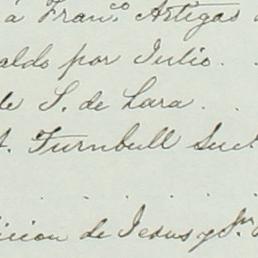 á Fran.co Artigas
aldo por Julio . .
de S. de Lara . .
A. Turnbull Suct
icion de Jesus y Sn